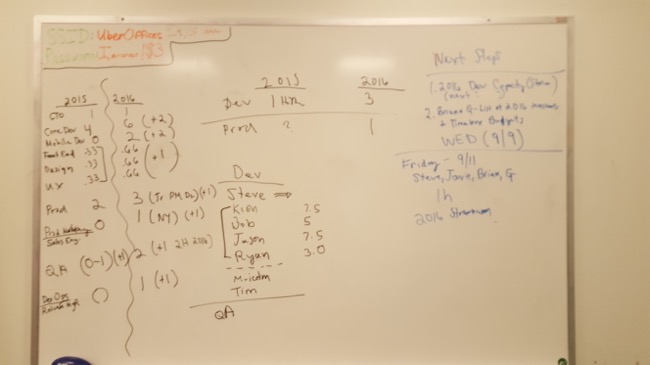 SSID: UberOffices
2015
CTO 1
Core Dev 4
Mobile Dev 0
Front End .33
Design .33
UX .33
Prod 2
Prod Marketing 0
Sales Eng.
QA (0-1) (+1)
DevOps 0
2016
1
6 (+2)
2 (+2)
.66
.66 (+1)
.66
3 (Jr PM DC) (+1)
1 (NY) (+1)
2 (+1 2H 2016)
1 (+1)
2015 2016
Dev 3
Prod ? 1
Dev
Steve ⇒
7.5
Bob 5
Jason 7.5
Ryan 3.0
Tim
QA
Next Steps
1. 2016 Dev
2. Brian & G - List of 2016
+ Timeline Budgets
WED (9/9)
Friday - 9/11
Steve, Jave, Brian, G
1h
2016